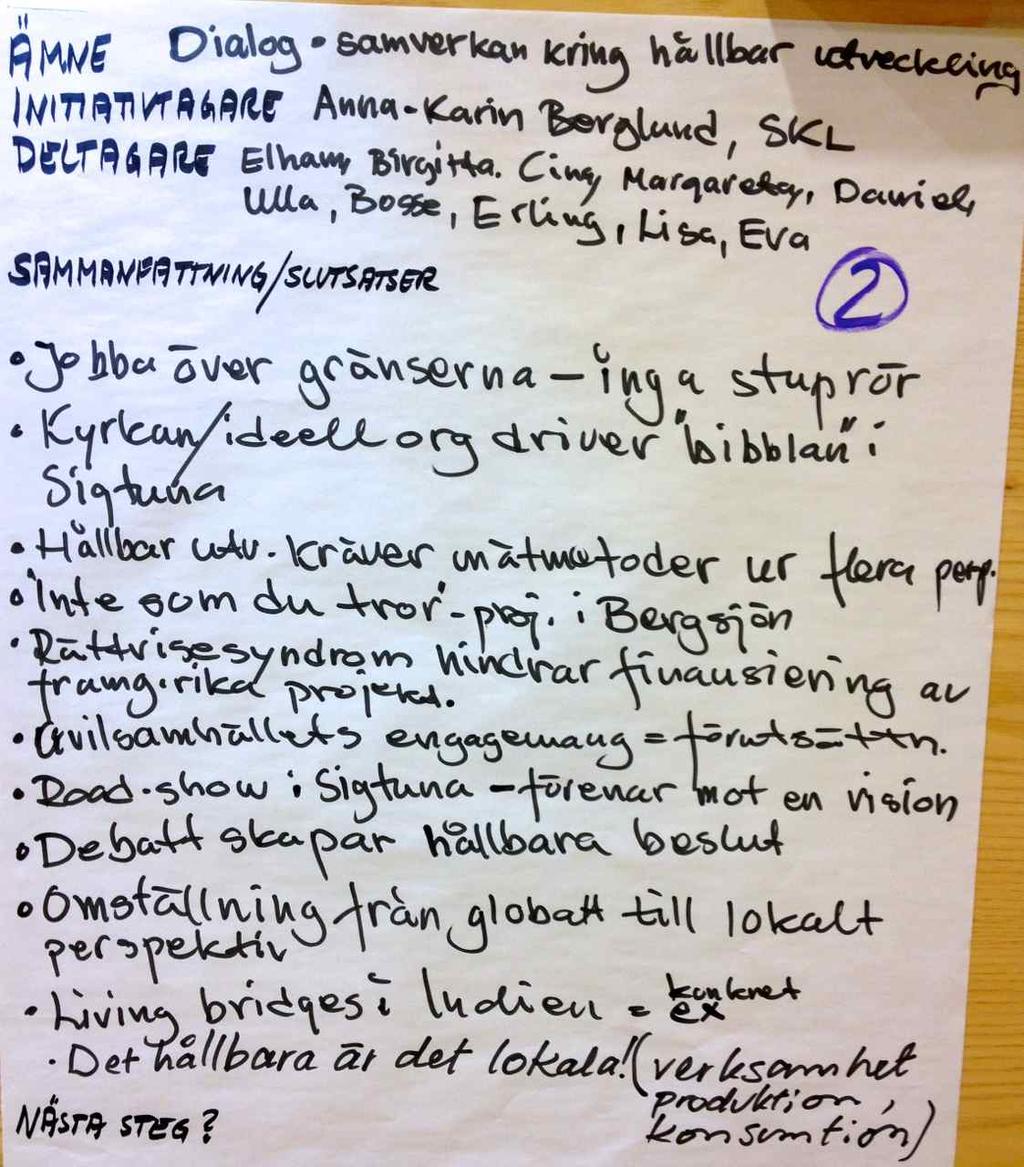 ÄMNE Dialog • samverkan kring hållbar utveckling
INITIATIVTAGARE Anna-Karin Berglund, SKL
DELTAGARE Elham, Birgitta. Cina, Margareta, Daniel,
Ulla, Bosse, Erling, Lisa, Eva
SAMMANFATTNING/SLUTSATSER
2
• Jobba över gränserna – inga stuprör
• Kyrkan/ideell org driver "bibblan" i
Sigtuna
• Hållbar utv. kräver mätmetoder ur flera persp.
• "Inte som du tror"-proj. i Bergsjön
• Rättvisesyndrom hindrar finansiering av
framg.rika projekt.
• Civilsamhällets engagemang = förutsättn.
• Road-show i Sigtuna – förenar mot en vision
• Debatt skapar hållbara beslut
• Omställning från globalt till lokalt
perspektiv
• Living bridges i Indien = konkret
ex
• Det hållbara är det lokala! (verksamhet
produktion,
konsumtion)
NÄSTA STEG?